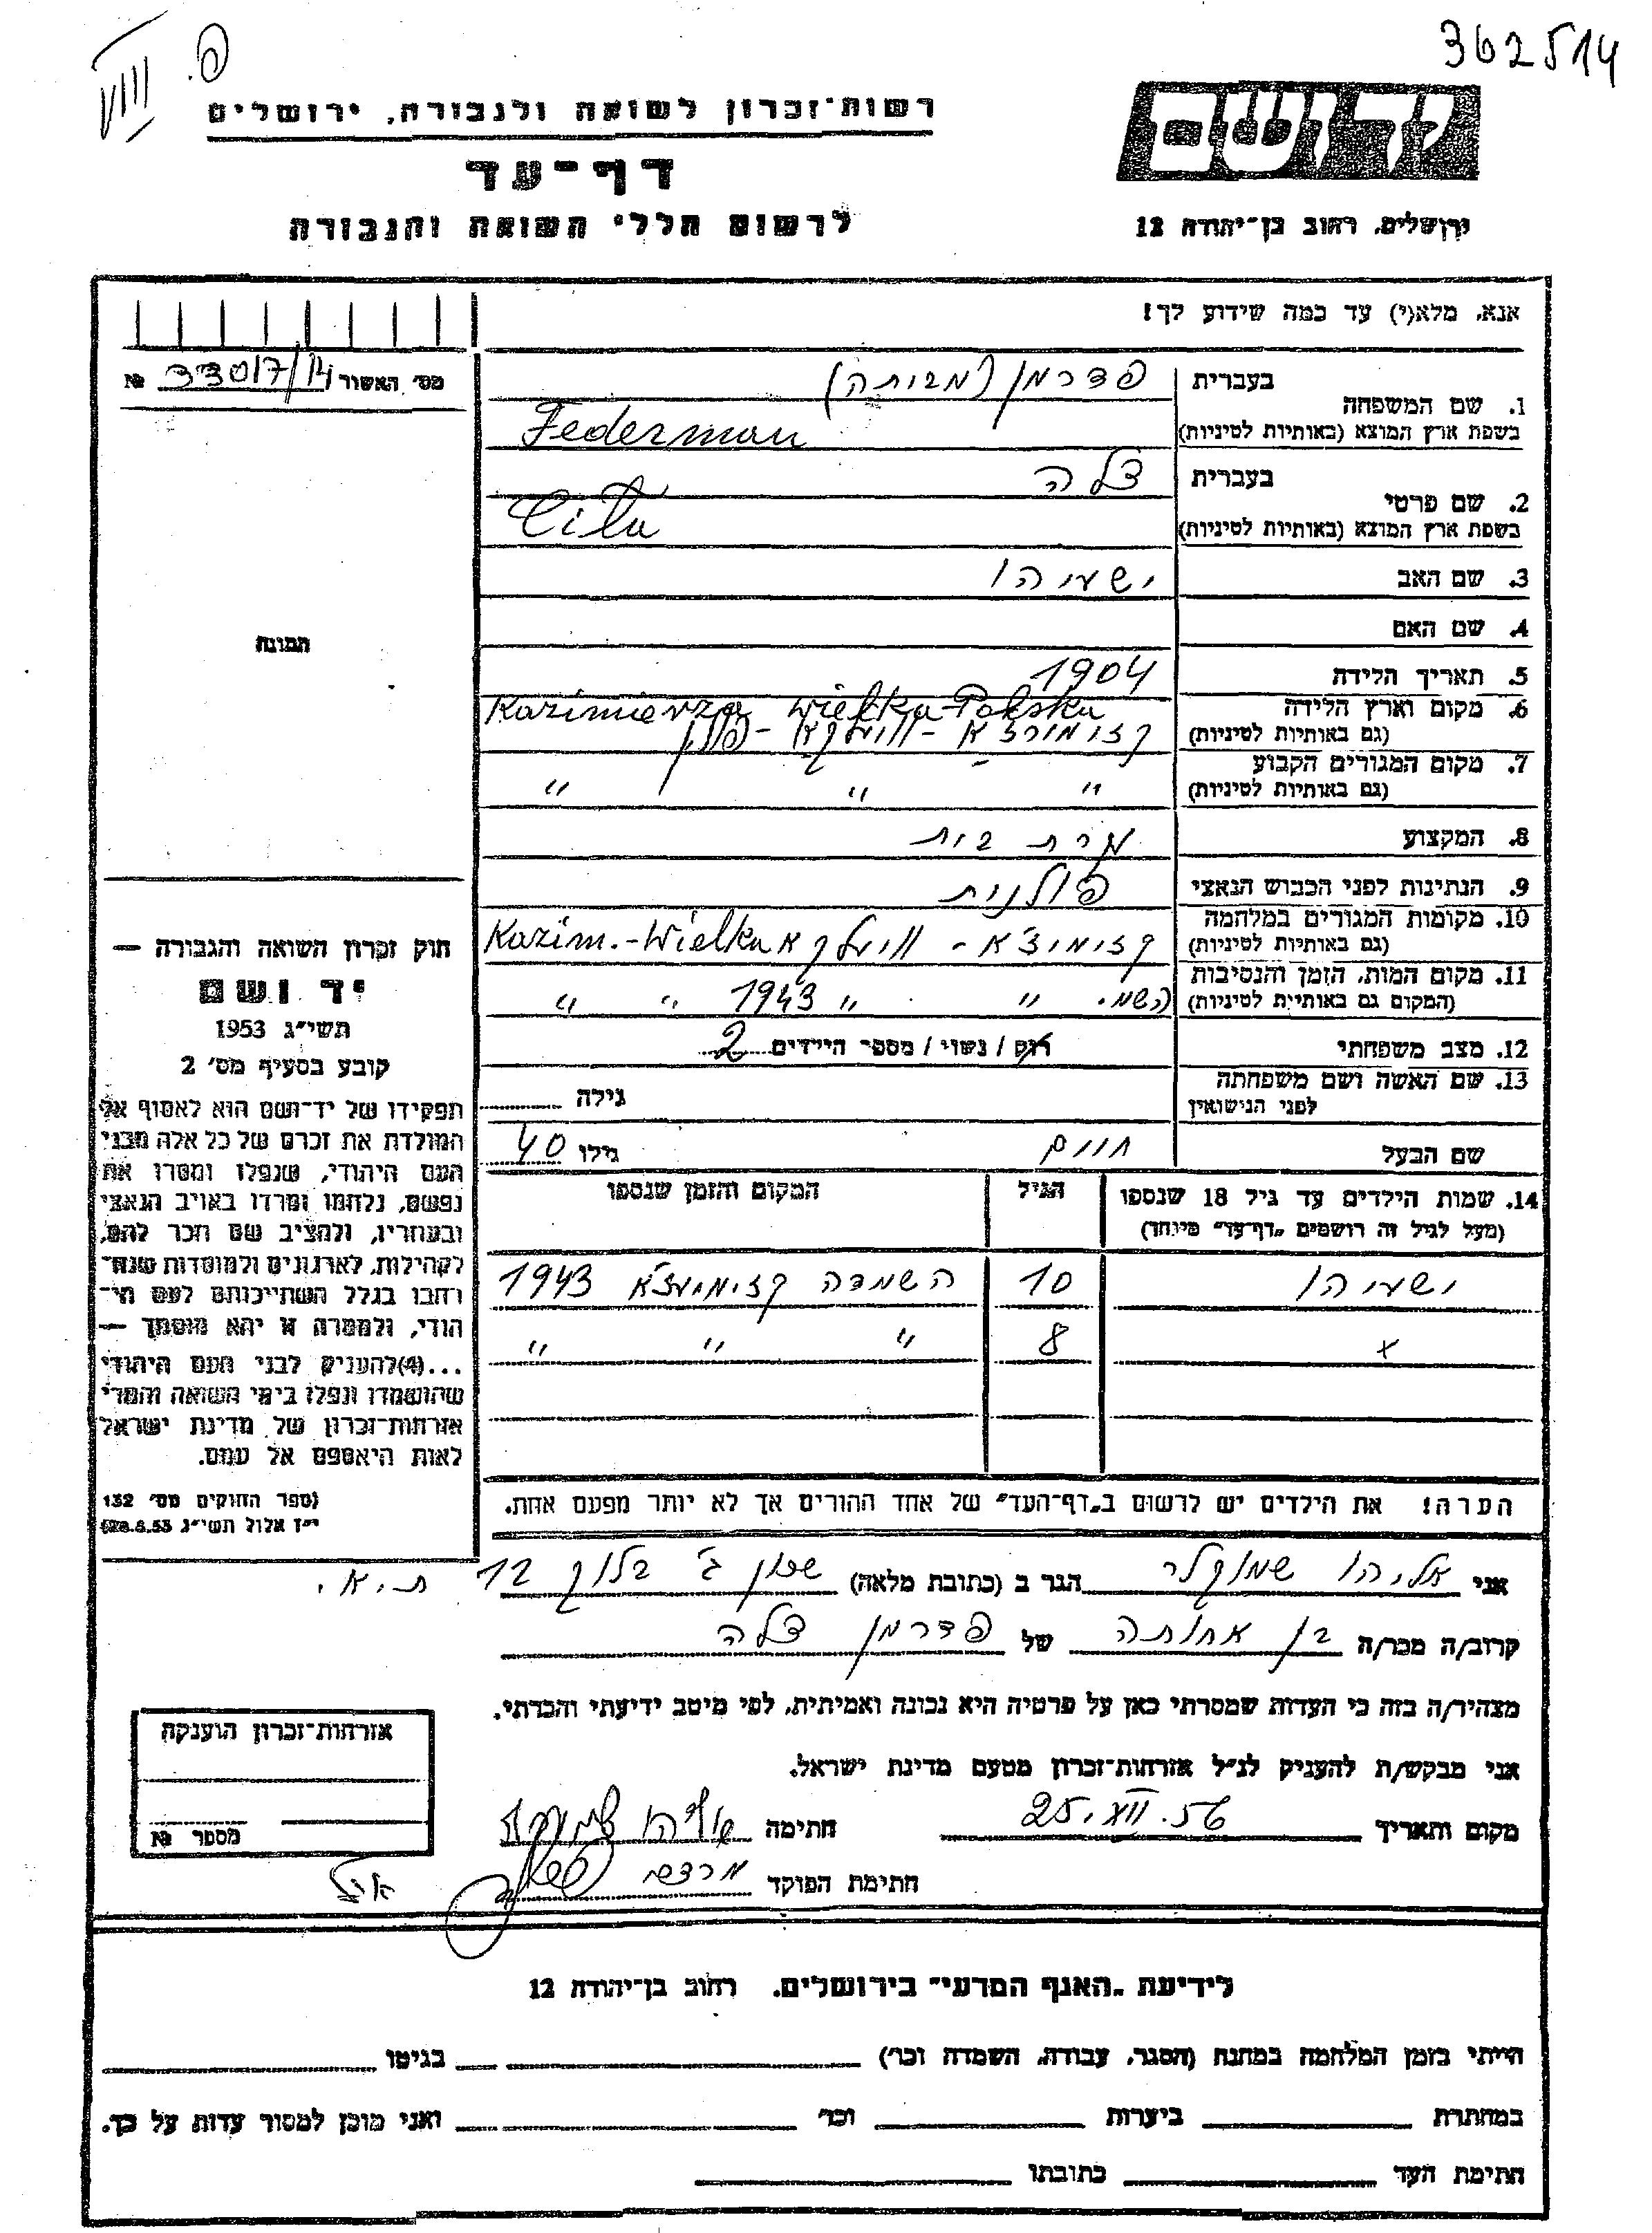 362514
פ. VIII
יד ושם
רשות־זכרון לשואה ולגבורה, ירושלים
דף־עד
ירושלים, רחוב בן־יהודה 12
לרשום חללי השואה והגבורה
אנא, מלא(י) עד כמה שידוע לך!
מס׳ האשור 33017/14 №
1. שם המשפחה
בעברית פדרמן (מבותה)
בשפת ארץ המוצא (באותיות לטיניות) Federman
2. שם פרטי
בעברית צלה
בשפת ארץ המוצא (באותיות לטיניות)
3. שם האב ישעיהו
4. שם האם
5. תאריך הלידה 1904
6. מקום וארץ הלידה Kazimierza Wielka-Polska
(גם באותיות לטיניות) קזימורזא - ווילקא - פולין
7. מקום המגורים הקבוע
(גם באותיות לטיניות) " " "
8. המקצוע עקרת בית
9. הנתינות לפני הכבוש הנאצי פולנית
10. מקומות המגורים במלחמה
(גם באותיות לטיניות) קזימיצ׳א - ווילקא Kazim.-Wielka
11. מקום המות, הזמן והנסיבות
(המקום גם באותיות לטיניות) השמ. " " 1943 " "
12. מצב משפחתי רוק / נשוי / מספר הילדים 2
13. שם האשה ושם משפחתה
לפני הנישואין גילה
שם הבעל חיים גילו 40
14. שמות הילדים עד גיל 18 שנספו הגיל המקום והזמן שנספו
(מעל לגיל זה רושמים „דף־עד״ מיוחד)
ישעיהו 10 השמדה קזימיעז׳א 1943
x 8 " " "
הערה! את הילדים יש לרשום ב„דף־העד״ של אחד ההורים אך לא יותר מפעם אחת.
תמונה
חוק זכרון השואה והגבורה —
יד ושם
תשי״ג 1953
קובע בסעיף מס׳ 2
תפקידו של יד־ושם הוא לאסוף אל
המולדת את זכרם של כל אלה מבני
העם היהודי, שנפלו ומסרו את
נפשם, נלחמו ומרדו באויב הנאצי
ובעוזריו, ולהציב שם וזכר להם,
לקהילות, לארגונים ולמוסדות שנח־
רחבו בגלל השתייכותם לעם הי־
הודי, ולמטרה זו יהא מוסמך —
...(4)להעניק לבני העם היהודי
שהושמדו ונפלו בימי השואה והמרי
אזרחות־זכרון של מדינת ישראל
לאות היאספם אל עמם.
(ספר החוקים מס׳ 132
י״ז אלול תשי״ג 28.8.53)
אני אליהו שמוקלר הגר ב (כתובת מלאה) שכון ג׳ בלוק 12 ת.א.
קרוב/ה מכר/ה בן אחותה של פדרמן צלה
מצהיר/ה בזה כי העדות שמסרתי כאן על פרטיה היא נכונה ואמיתית, לפי מיטב ידיעתי והכרתי.
אני מבקש/ת להעניק לנ״ל אזרחות־זכרון מטעם מדינת ישראל.
מקום ותאריך 25.XII.56 חתימה
חתימת הפוקד
אזרחות־זכרון הוענקה
מספר №
לידיעת „האגף המדעי״ בירושלים, רחוב בן־יהודה 12
הייתי בזמן המלחמה במחנה (הסגר, עבודה, השמדה וכר׳) בגיטו
במחתרת ביערות וכר׳ ואני מוכן למסור עדות על כך.
חתימת העד כתובתו